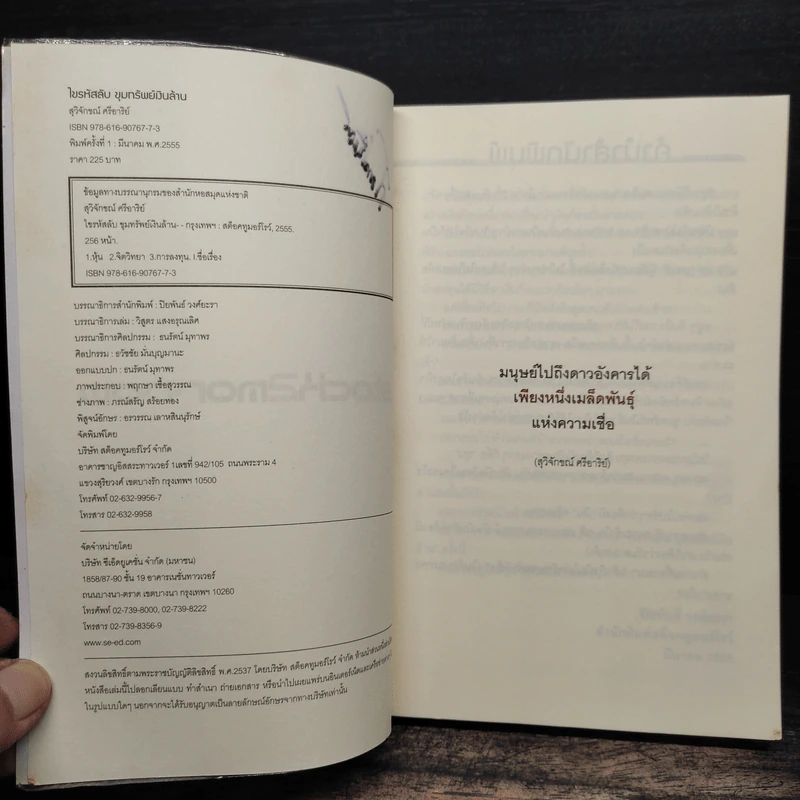 ไขรหัสลับ ขุมทรัพย์เงินล้าน
สุวิจักขณ์ ศรีอาริย์
ISBN 978-616-90767-7-3
พิมพ์ครั้งที่ 1 : มีนาคม พ.ศ.2555
ราคา 225 บาท
ข้อมูลทางบรรณานุกรมของสำนักหอสมุดแห่งชาติ
สุวิจักขณ์ ศรีอาริย์
ไขรหัสลับ ขุมทรัพย์เงินล้าน-- กรุงเทพฯ : สต็อคทูมอร์โรว์, 2555.
256 หน้า.
1.หุ้น 2.จิตวิทยา 3.การลงทุน. I.ชื่อเรื่อง
ISBN 978-616-90767-7-3
บรรณาธิการสำนักพิมพ์ : ปิยพันธ์ วงศ์ยะรา
บรรณาธิการเล่ม : วิสูตร แสงอรุณเลิศ
บรรณาธิการศิลปกรรม : ธนรัตน์ มุทาพร
ศิลปกรรม : ธวัชชัย มั่นบุญมานะ
ออกแบบปก : ธนรัตน์ มุทาพร
ภาพประกอบ : พฤกษา เชื้อสุวรรณ
ช่างภาพ : ภรณ์สรัญ สร้อยทอง
พิสูจน์อักษร : อรวรรณ เลาหสินนุรักษ์
จัดพิมพ์โดย
บริษัท สต็อคทูมอร์โรว์ จำกัด
อาคารชาญอิสสระทาวเวอร์ 1เลขที่ 942/105 ถนนพระราม 4
แขวงสุริยวงศ์ เขตบางรัก กรุงเทพฯ 10500
โทรศัพท์ 02-632-9956-7
โทรสาร 02-632-9958
จัดจำหน่ายโดย
บริษัท ซีเอ็ดยูเคชั่น จำกัด (มหาชน)
1858/87-90 ชั้น 19 อาคารเนชั่นทาวเวอร์
ถนนบางนา-ตราด เขตบางนา กรุงเทพฯ 10260
โทรศัพท์ 02-739-8000, 02-739-8222
โทรสาร 02-739-8356-9
www.se-ed.com
สงวนลิขสิทธิ์ตามพระราชบัญญัติลิขสิทธิ์ พ.ศ.2537 โดยบริษัท สต็อคทูมอร์โรว์ จำกัด ห้ามนำส่วนหนึ่งส่วนใด
หนังสือเล่มนี้ไปลอกเลียนแบบ ทำสำเนา ถ่ายเอกสาร หรือนำไปเผยแพร่บนอินเตอร์เน็ตและเครือข่ายต่างๆ
ในรูปแบบใดๆ นอกจากจะได้รับอนุญาตเป็นลายลักษณ์อักษรจากทางบริษัทเท่านั้น
มนุษย์ไปถึงดาวอังคารได้
เพียงหนึ่งเมล็ดพันธุ์
แห่งความเชื่อ
(สุวิจักขณ์ ศรีอาริย์)